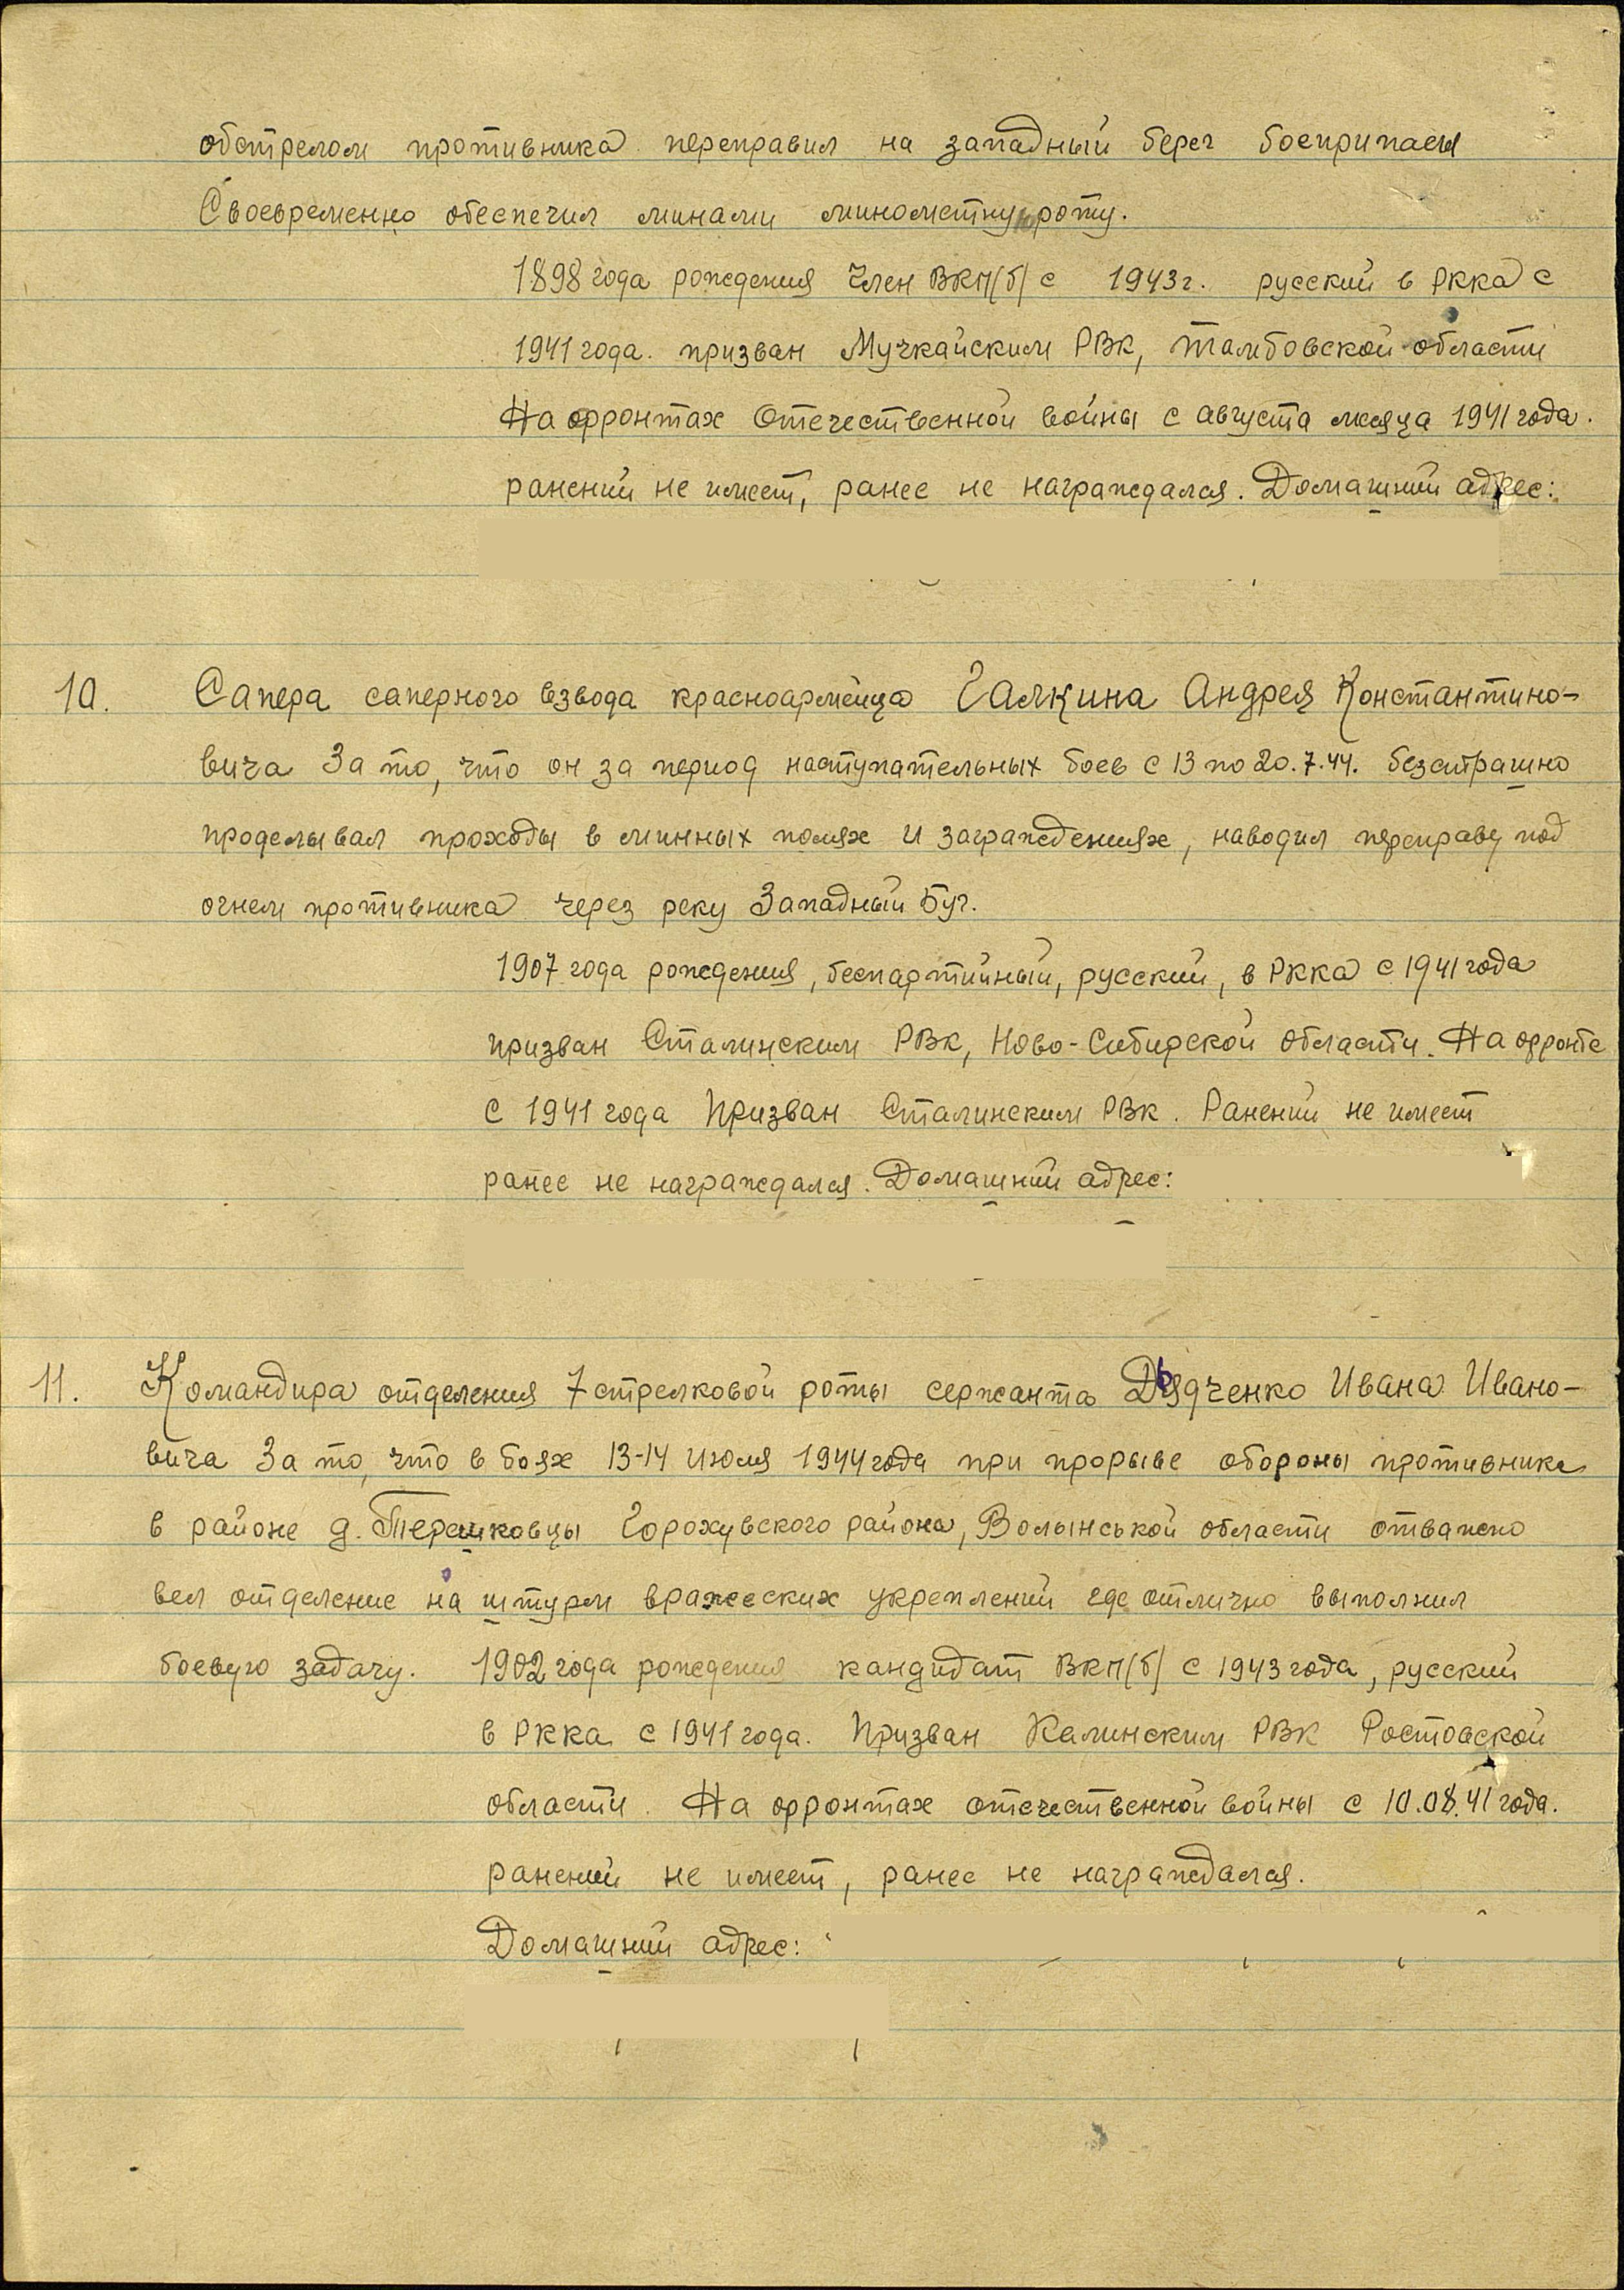 обстрелом противника переправил на западный берег боеприпасы
Своевременно обеспечил минами минометную роту.
1898 года рождения Член ВКП(б) с 1943г. русский в РККА с
1941 года. призван Мучкайским РВК, Тамбовской области
На фронтах Отечественной войны с августа месяца 1941 года.
ранений не имеет, ранее не награждался. Домашний адрес:
10. Сапера саперного взвода красноармейца Галкина Андрея Константино-
вича За то, что он за период наступательных боев с 13 по 20.7.44. безстрашно
проделывал проходы в минных полях и заграждениях, наводил переправу под
огнем противника через реку Западный Буг.
1907 года рождения, беспартийный, русский, в РККА с 1941 года
призван Сталинским РВК, Ново-Сибирской области. На фронте
с 1941 года Призван Сталинским РВК. Ранений не имеет
ранее не награждался. Домашний адрес:
11. Командира отделения 7 стрелковой роты сержанта Дьядченко Ивана Ивано-
вича За то, что в боях 13-14 июля 1944 года при прорыве обороны противника
в районе д. Терешковцы Горохувского района, Волынськой области отважно
вел отделение на штурм вражеских укреплений где отлично выполнил
боевую задачу. 1902 года рождения кандидат ВКП(б) с 1943 года, русский
в РККА с 1941 года. Призван Калинским РВК Ростовской
области. На фронтах отечественной войны с 10.08.41 года.
ранений не имеет, ранее не награждался.
Домашний адрес: